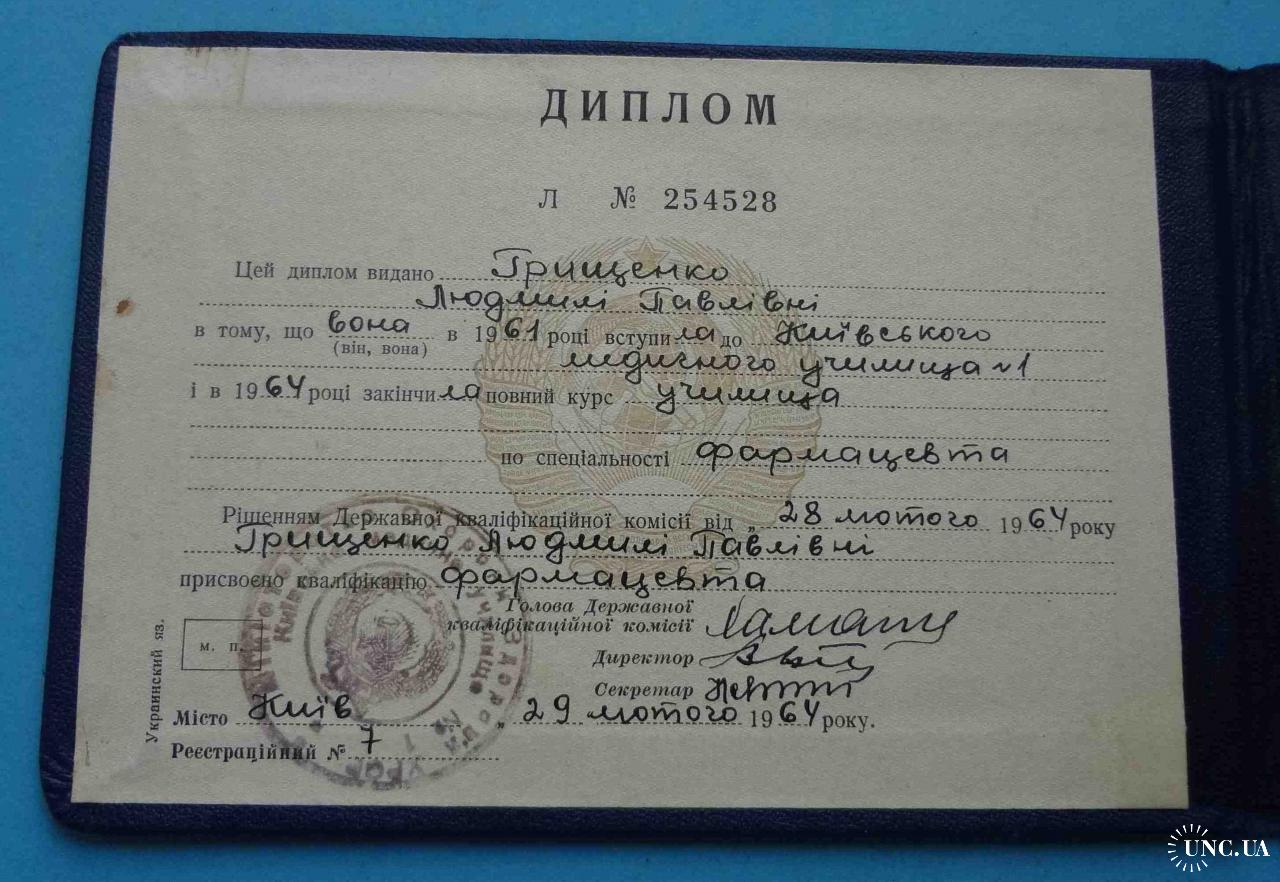 ДИПЛОМ
Л № 254528
Цей диплом видано Грищенко
Людмилі Павлівні
в тому, що вона в 1961 році вступила до Київського
(він, вона)
медичного училища №1
і в 1964 році закінчила повний курс училища
по спеціальності фармацевта
Рішенням Державної кваліфікаційної комісії від „ 28 лютого 1964 року
Грищенко Людмилі Павлівні
присвоєно кваліфікацію фармацевта
Голова Державної
кваліфікаційної комісії
м. п.
Директор
Секретар
Місто Київ „ 29 лютого 1964 року.
Реєстраційний № 7
Украинский яз.
UNC.UA